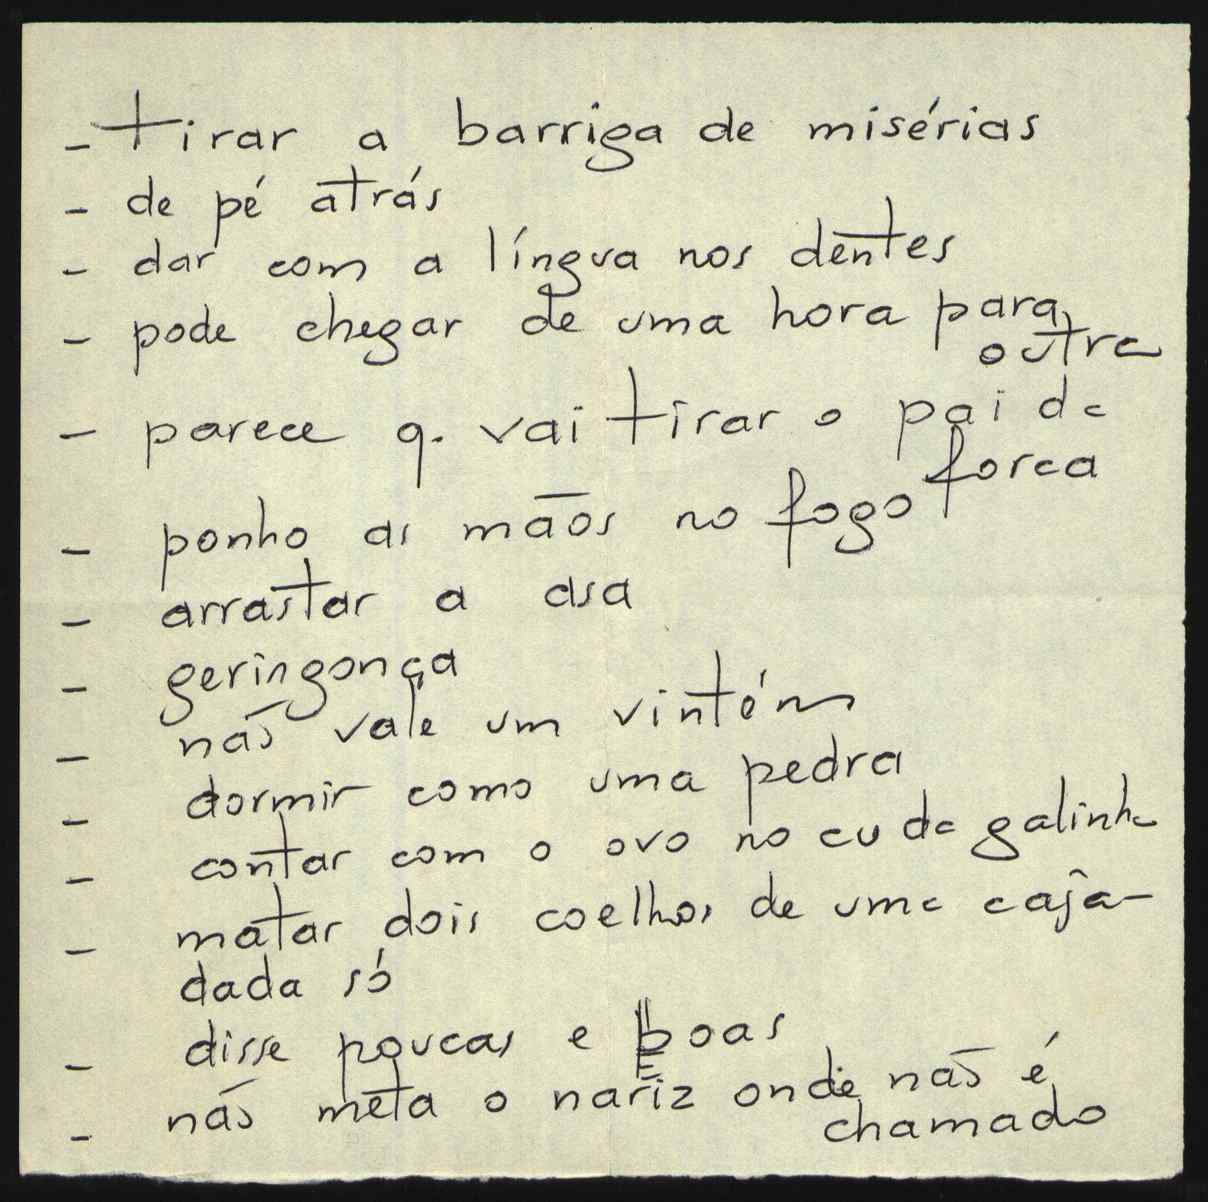 - tirar a barriga de misérias
- de pé atrás
- dar com a língua nos dentes
- pode chegar de uma hora para
outra
- parece q. vai tirar o pai da
forca
- ponho as mãos no fogo
- arrastar a asa
- geringonça
- não vale um vintém
- dormir como uma pedra
- contar com o ovo no cu da galinha
- matar dois coelhos de uma caja-
dada só
- disse poucas e boas
- não meta o nariz onde não é
chamado